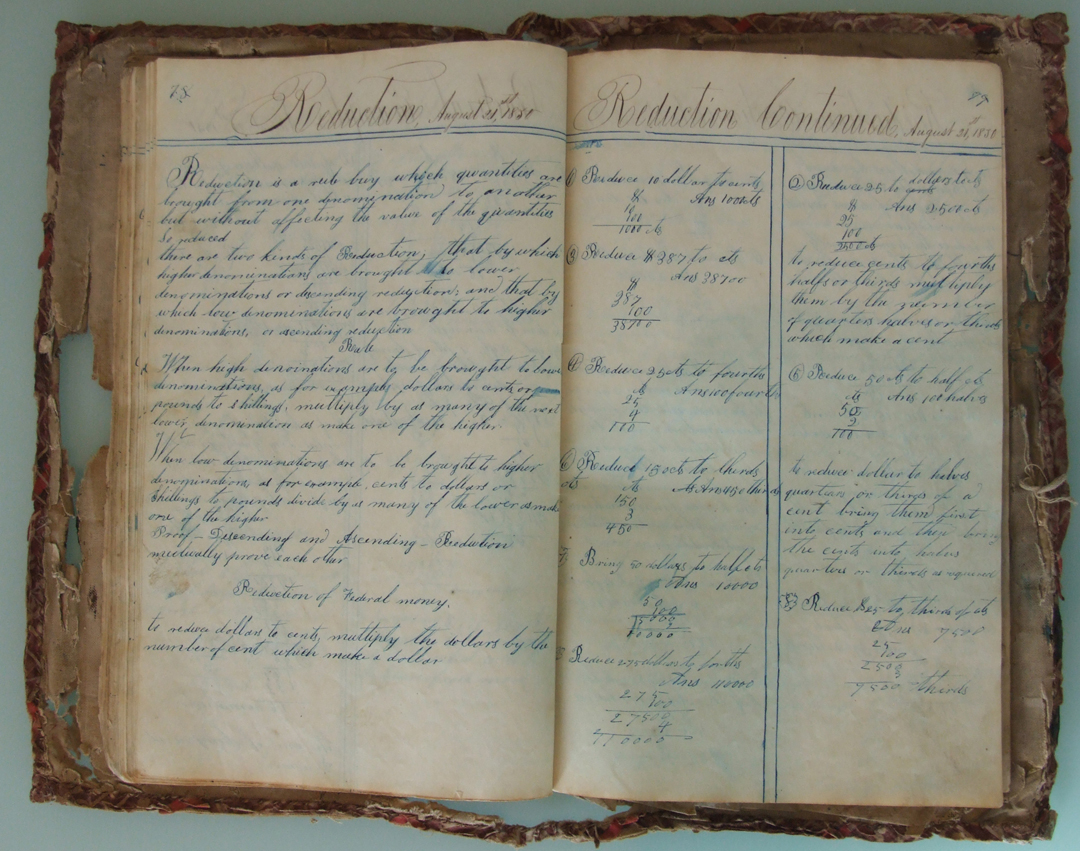 78
Reduction, August 21st 1850
Reduction is a rule buy which quantities are
brought from one denomination to another
but without affecting the value of the quantities
so reduced
there are two kinds of Reduction, that by which
higher denominations are brought to lower
denominations or decending reduction, and that by
which low denominations are brought to higher
denominations, or ascending reduction
Rule
When high denoinations are to be brought to lower
denominations, as for example dollars to cents or
pounds to shillings, multiply by as many of the next
lower denomination as make one of the higher
When low denominations are to be brought to higher
denominations as for example, cents to dollars or
shillings to pounds divide by as many of the lower as make
one of the higher
Proof - Descending and Ascending - Reduction
mutually prove each other
Reduction of Federal money.
to reduce dollars to cents, multiply the dollars by the
number of cent which make a dollar
Reduction Continued, August 21st, 1850
Reduce 10 dollar to cents
$ Ans 1000cts
10
100
1000 cts
Reduce $387 to cts
$ Ans 38700
387
100
38700
Reduce 25cts to fourths
25
4
100
Reduce 150cts to thirds
150
3
450
Bring 50 dollars to half cts
Ans 10000
50
10000
Reduce 275 dollars to fourths
Ans 110000
275
100
27500
4
110000
Reduce 25 dollars to cts
$ Ans 2500 cts
25
100
2500 cts
to reduce cents to fourths
halfs or thirds multiply
them by the number
of quarters halves or thirds
which make a cent
Reduce 50 cts to half cts
cts Ans 100 halves
50
2
100
to reduce dollar to halves
quarters or thirds of a
cent bring them first
into cents and then bring
the cents into halves
quarters or thirds as required
Reduce $25 to thirds of cts
Ans 7500
25
100
2500
3
7500 thirds